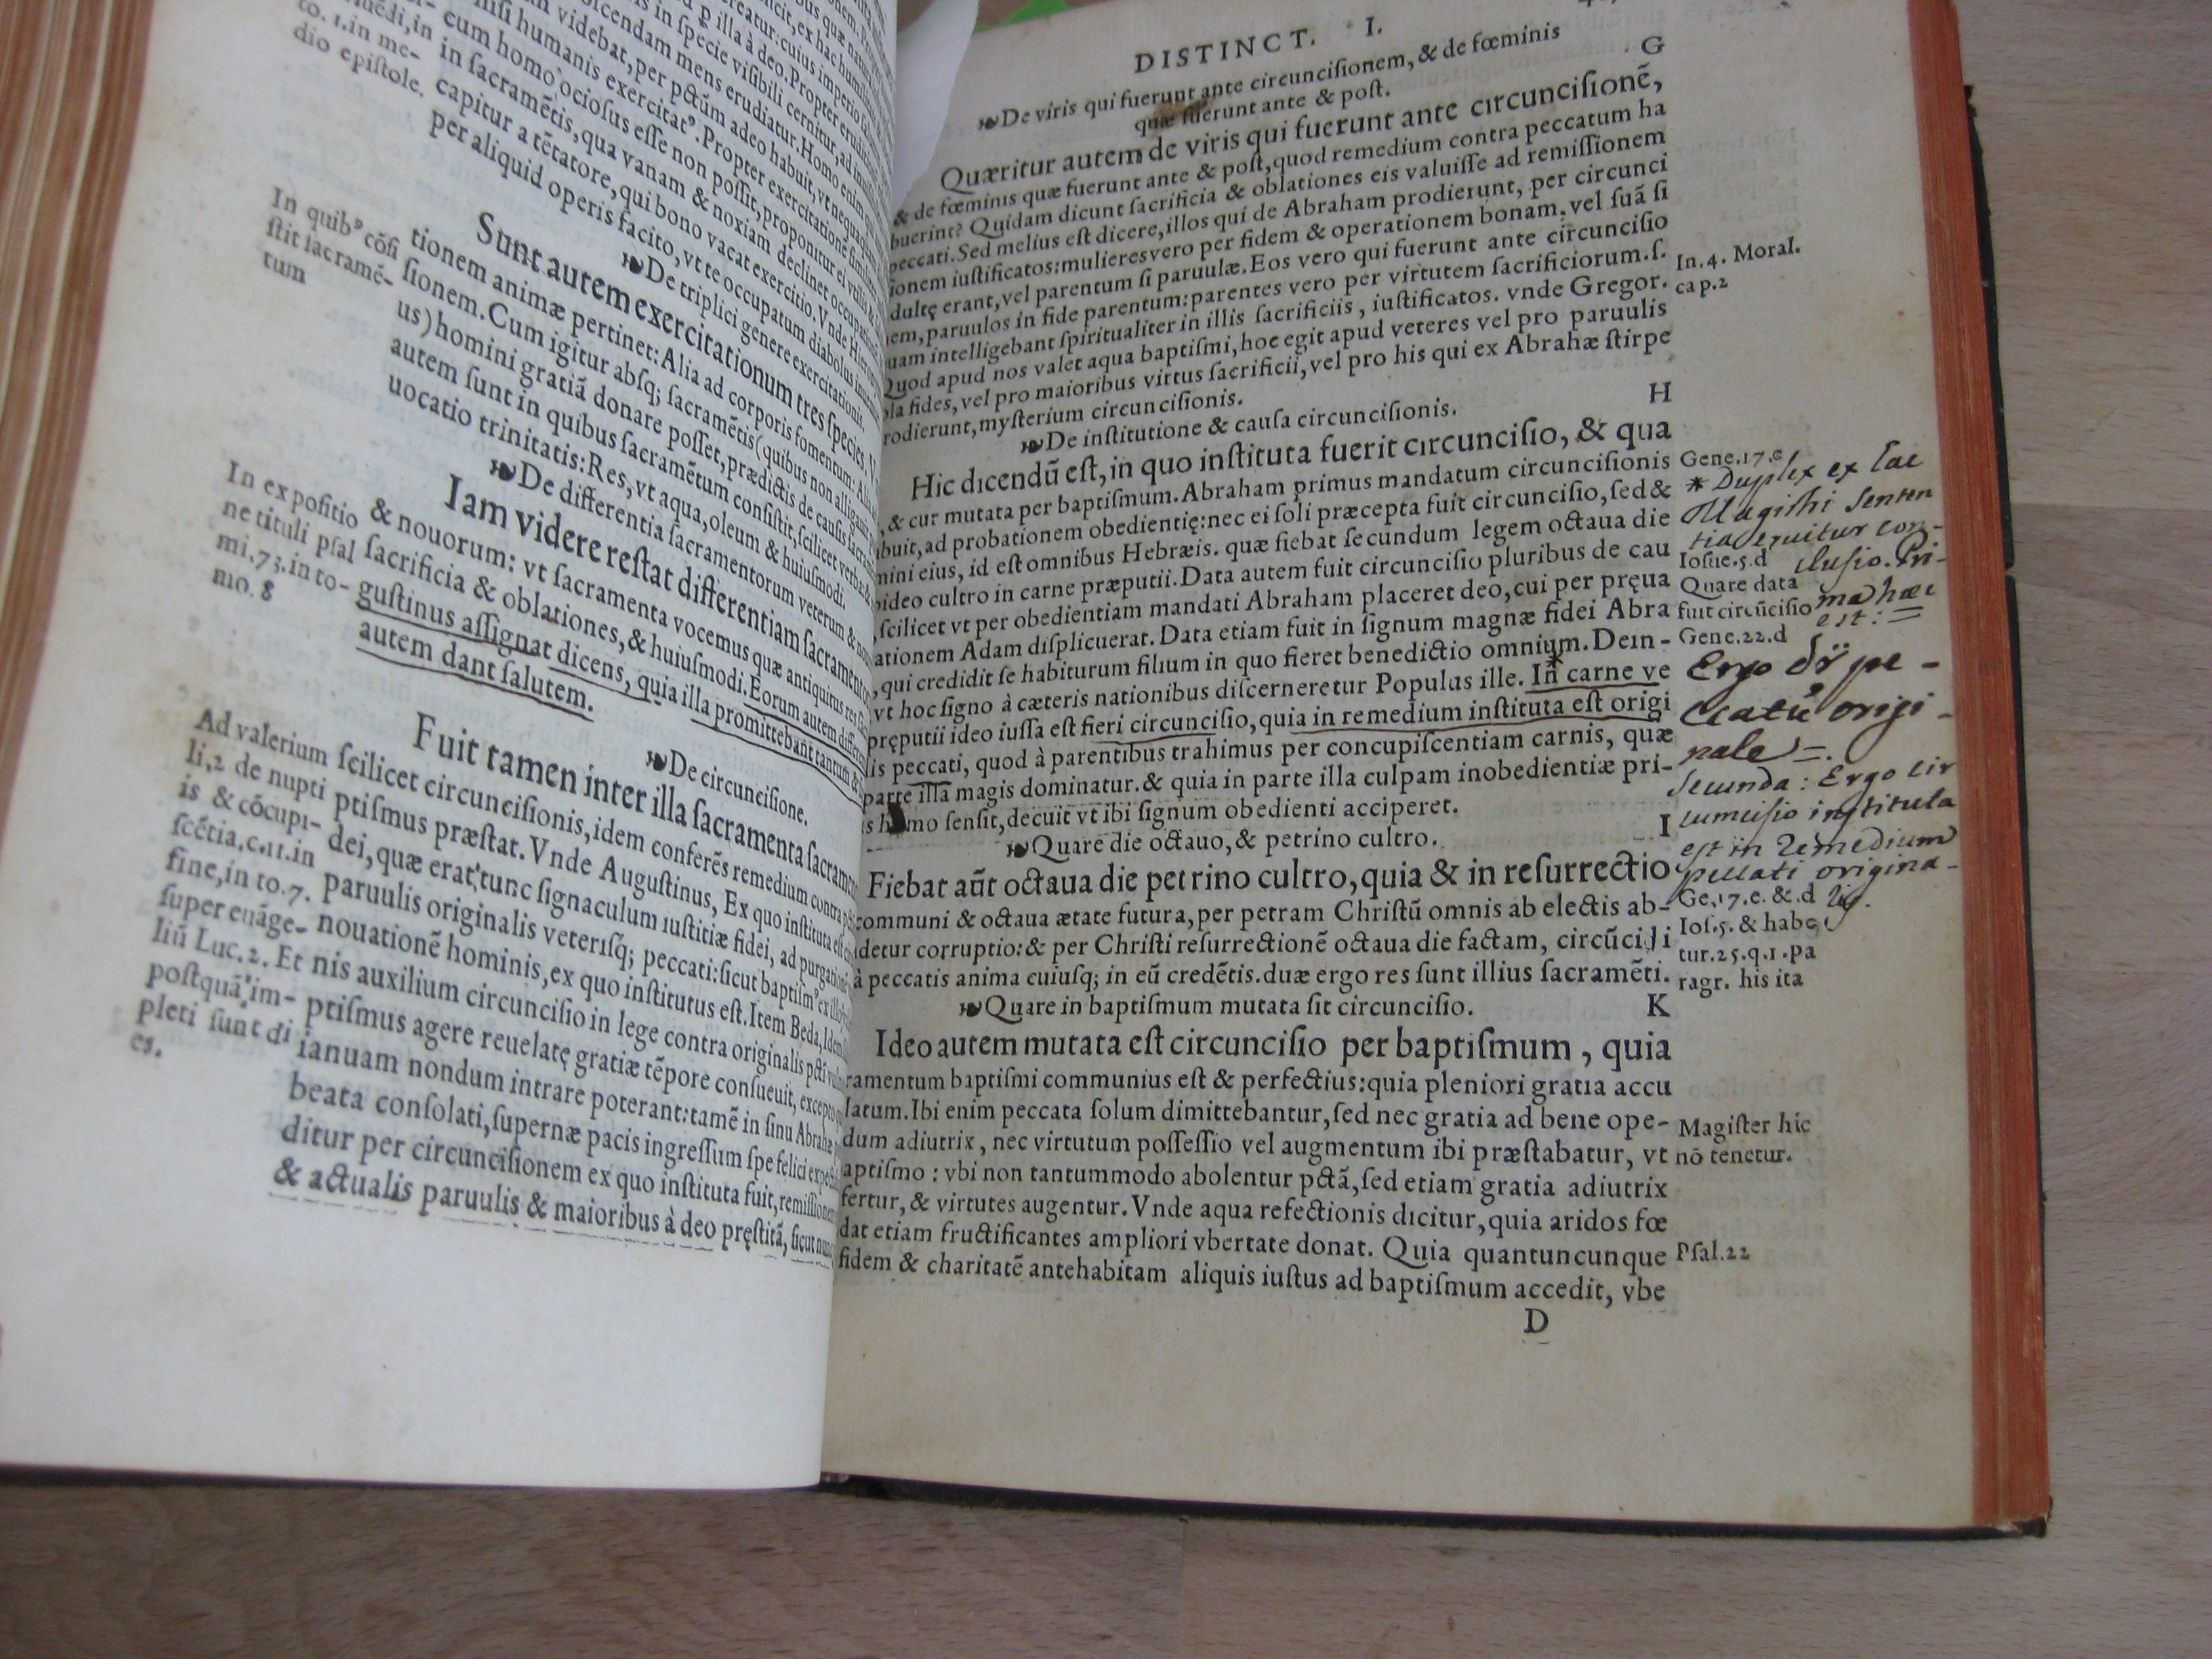 cum homo ociosus esse non possit, proponitur ei vtilis &
to. 1. in me-
dio epistole.
in sacramētis, qua vanam & noxiam declinet occupationem
capitur a tētatore, qui bono vacat exercitio. Vnde Hieron
per aliquid operis facito, vt te occupatum diabolus inueniat
❧De triplici genere exercitationis.
Sunt autem exercitationum tres species. V
In quibꝰ cōsi
stit sacramē-
tum
tionem animæ pertinet: Alia ad corporis fomentum: Alia
sionem. Cum igitur absq; sacramētis (quibus non alligauit
us) homini gratiā donare posset, prædictis de causis sacra
autem sunt in quibus sacramētum consistit, scilicet verba &
uocatio trinitatis: Res, vt aqua, oleum & huiusmodi.
❧De differentia sacramentorum veterum &
Iam videre restat differentiam sacramento
In expositio
ne tituli psal
mi. 73. in to-
mo. 8
& nouorum: vt sacramenta vocemus quæ antiquitus res
sacrificia & oblationes, & huiusmodi. Eorum autem differen
gustinus assignat dicens, quia illa promittebant tantum &
autem dant salutem.
❧De circuncisione.
Fuit tamen inter illa sacramenta sacramen
Ad valerium
li. 2 de nupti
is & cōcupi-
scētia. c. 11. in
fine, in to. 7.
super euāge-
liū Luc. 2. Et
postquā im-
pleti sunt di
es.
scilicet circuncisionis, idem conferēs remedium contra
ptismus præstat. Vnde Augustinus, Ex quo instituta est
dei, quæ erat tunc signaculum iustitiæ fidei, ad purgationē
paruulis originalis veterisq; peccati: sicut baptismꝰ ex illo
nouationē hominis, ex quo institutus est. Item Beda, Idem
nis auxilium circuncisio in lege contra originalis pcti
ptismus agere reuelatę gratiæ tēpore consueuit, excepto
ianuam nondum intrare poterant: tamē in sinu Abrahæ
beata consolati, supernæ pacis ingressum spe felici
ditur per circuncisionem ex quo instituta fuit, remissionem
& actualis paruulis & maioribus à deo pręstitā, sicut nunc
DISTINCT. I.
❧De viris qui fuerunt ante circuncisionem, & de fœminis
quæ fuerunt ante & post.
G
Quæritur autem de viris qui fuerunt ante circuncisionē,
& de fœminis quæ fuerunt ante & post, quod remedium contra peccatum ha
buerint? Quidam dicunt sacrificia & oblationes eis valuisse ad remissionem
peccati. Sed melius est dicere, illos qui de Abraham prodierunt, per circunci
ionem iustificatos: mulieres vero per fidem & operationem bonam, vel suā si
dultę erant, vel parentum si paruulæ. Eos vero qui fuerunt ante circuncisio
nem, paruulos in fide parentum: parentes vero per virtutem sacrificiorum. s.
quam intelligebant spiritualiter in illis sacrificiis, iustificatos. vnde Gregor.
In. 4. Moral.
cap. 2
Quod apud nos valet aqua baptismi, hoc egit apud veteres vel pro paruulis
ola fides, vel pro maioribus virtus sacrificii, vel pro his qui ex Abrahæ stirpe
rodierunt, mysterium circuncisionis.
❧De institutione & causa circuncisionis.
H
Hic dicendū est, in quo instituta fuerit circuncisio, & qua
, & cur mutata per baptismum. Abraham primus mandatum circuncisionis
ibuit, ad probationem obedientię: nec ei soli præcepta fuit circuncisio, sed &
mini eius, id est omnibus Hebræis. quæ fiebat secundum legem octaua die
pideo cultro in carne præputii. Data autem fuit circuncisio pluribus de cau
, scilicet vt per obedientiam mandati Abraham placeret deo, cui per pręua
ationem Adam displicuerat. Data etiam fuit in signum magnæ fidei Abra
, qui credidit se habiturum filium in quo fieret benedictio omnium. Dein-
vt hoc signo à cæteris nationibus discerneretur Populus ille. In carne ve
pręputii ideo iussa est fieri circuncisio, quia in remedium instituta est origi
lis peccati, quod à parentibus trahimus per concupiscentiam carnis, quæ
parte illa magis dominatur. & quia in parte illa culpam inobedientiæ pri-
s homo sensit, decuit vt ibi signum obedienti acciperet.
Gene. 17. c
* Duplex ex hac
Magistri senten
tia eruitur con-
clusio. Pri-
ma hæc
est:
Iosue. 5. d
Quare data
fuit circūcisio
Gene. 22. d
Ergo dr̄ pe-
ccatū origi-
nale
secunda: Ergo cir
cumcisio instituta
est in remedium
peccati origina-
lis.
❧Quare die octauo, & petrino cultro.
I
Fiebat aūt octaua die petrino cultro, quia & in resurrectio
communi & octaua ætate futura, per petram Christū omnis ab electis ab-
detur corruptio: & per Christi resurrectionē octaua die factam, circūcisi
à peccatis anima cuiusq; in eū credētis. duæ ergo res sunt illius sacramēti.
Ge. 17. e. & d
Ios. 5. & habe
tur. 25. q. 1. pa
ragr. his ita
❧Quare in baptismum mutata sit circuncisio.
K
Ideo autem mutata est circuncisio per baptismum, quia
ramentum baptismi communius est & perfectius: quia pleniori gratia accu
latum. Ibi enim peccata solum dimittebantur, sed nec gratia ad bene ope-
dum adiutrix, nec virtutum possessio vel augmentum ibi præstabatur, vt
aptismo: vbi non tantummodo abolentur pctā, sed etiam gratia adiutrix
fertur, & virtutes augentur. Vnde aqua refectionis dicitur, quia aridos fœ
dat etiam fructificantes ampliori vbertate donat. Quia quantuncunque
fidem & charitatē antehabitam aliquis iustus ad baptismum accedit, vbe
Magister hic
nō tenetur.
Psal. 22
D